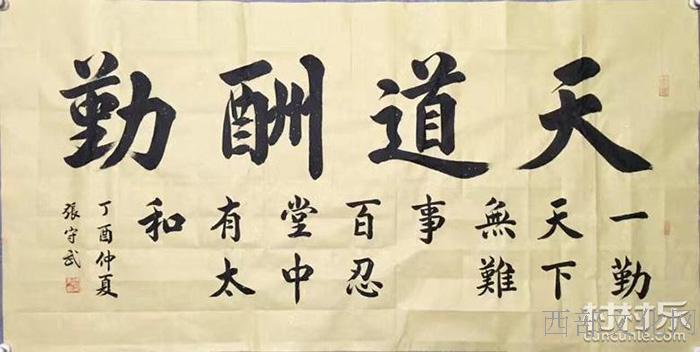 天道酬勤
一勤
天下
無難
事
百忍
堂中
有太
和
丁酉仲夏
張守武
村村乐
西部文化网
cancunle.com